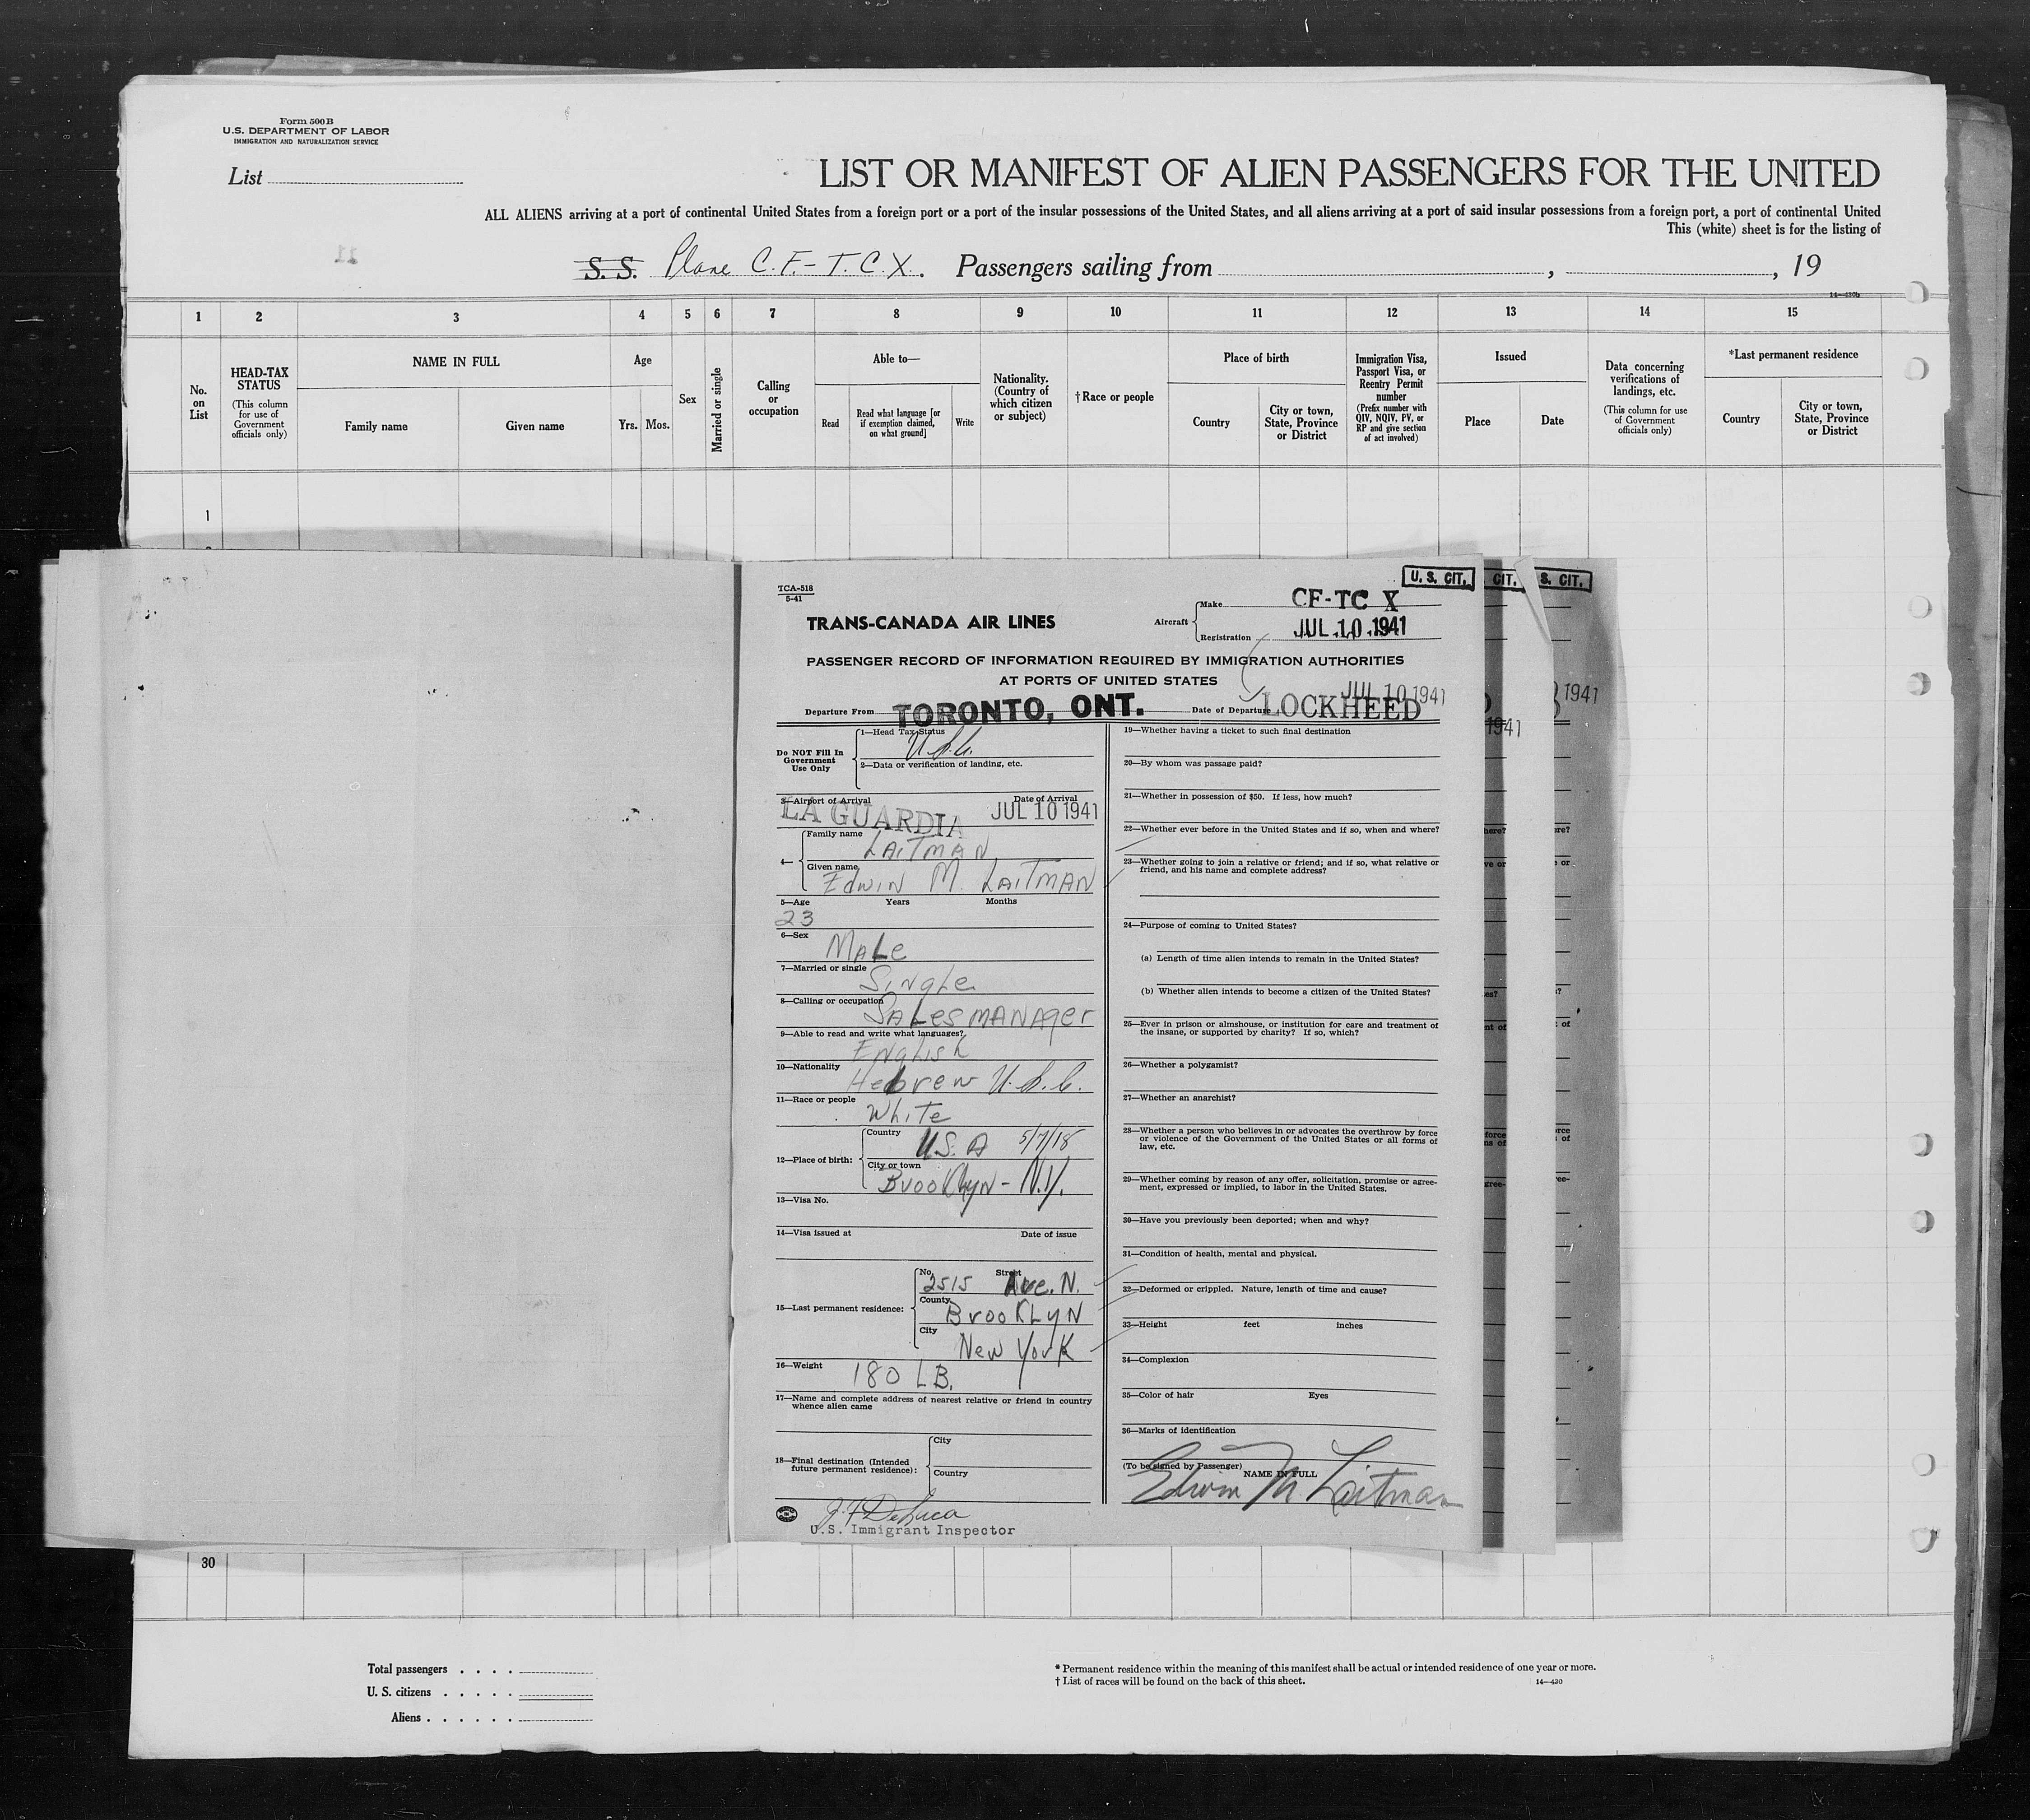 Form 500 B
U.S. DEPARTMENT OF LABOR
IMMIGRATION AND NATURALIZATION SERVICE
List
LIST OR MANIFEST OF ALIEN PASSENGERS FOR THE UNITED
ALL ALIENS arriving at a port of continental United States from a foreign port or a port of the insular possessions of the United States, and all aliens arriving at a port of said insular possessions from a foreign port, a port of continental United
This (white) sheet is for the listing of
11
S. S. Plane C.F.-T.C.X. Passengers sailing from , , 19
14—430b
1 2 3 4 5 6 7 8 9 10 11 12 13 14 15
No. on List
HEAD-TAX STATUS
(This column for use of Government officials only)
NAME IN FULL
Family name Given name
Age
Yrs. Mos.
Sex
Married or single
Calling or occupation
Able to—
Read
Read what language [or if exemption claimed, on what ground]
Write
Nationality. (Country of which citizen or subject)
†Race or people
Place of birth
Country
City or town, State, Province or District
Immigration Visa, Passport Visa, or Reentry Permit number
(Prefix number with QIV, NQIV, PV, or RP and give section of act involved)
Issued
Place Date
Data concerning verifications of landings, etc.
(This column for use of Government officials only)
*Last permanent residence
Country
City or town, State, Province or District
1
U. S. CIT.
CIT.
S. CIT.
TCA-518
5-41
TRANS-CANADA AIR LINES
Aircraft
Make CF-TC X
Registration JUL 10 1941
PASSENGER RECORD OF INFORMATION REQUIRED BY IMMIGRATION AUTHORITIES
AT PORTS OF UNITED STATES
JUL 10 1941
Departure From TORONTO, ONT. Date of Departure LOCKHEED
1941
1941
Do NOT Fill In
Government
Use Only
1—Head Tax Status U.S.C.
2—Data or verification of landing, etc.
3—Airport of Arrival Date of Arrival
LA GUARDIA JUL 10 1941
4—
Family name
LAITMAN
Given name
Edwin M. LAITMAN
5—Age Years Months
23
6—Sex
Male
7—Married or single
Single
8—Calling or occupation
SALESMANAger
9—Able to read and write what languages?
English
10—Nationality
Hebrew U.S.C.
11—Race or people
White
12—Place of birth:
Country
U.S.A 5/7/18
City or town
Brooklyn - N.Y.
13—Visa No.
14—Visa issued at Date of issue
15—Last permanent residence:
No. Street
2515 Ave. N.
County
BrooKLyN
City
New York
16—Weight 180 LB.
17—Name and complete address of nearest relative or friend in country
whence alien came
18—Final destination (Intended
future permanent residence):
City
Country
J. F. DeLuca
U.S. Immigrant Inspector
19—Whether having a ticket to such final destination
20—By whom was passage paid?
21—Whether in possession of $50. If less, how much?
22—Whether ever before in the United States and if so, when and where?
23—Whether going to join a relative or friend; and if so, what relative or
friend, and his name and complete address?
24—Purpose of coming to United States?
(a) Length of time alien intends to remain in the United States?
(b) Whether alien intends to become a citizen of the United States?
25—Ever in prison or almshouse, or institution for care and treatment of
the insane, or supported by charity? If so, which?
26—Whether a polygamist?
27—Whether an anarchist?
28—Whether a person who believes in or advocates the overthrow by force
or violence of the Government of the United States or all forms of
law, etc.
29—Whether coming by reason of any offer, solicitation, promise or agree-
ment, expressed or implied, to labor in the United States.
30—Have you previously been deported; when and why?
31—Condition of health, mental and physical.
32—Deformed or crippled. Nature, length of time and cause?
33—Height feet inches
34—Complexion
35—Color of hair Eyes
36—Marks of identification
(To be signed by Passenger) NAME IN FULL
Edwin M Laitman
30
Total passengers
U. S. citizens
Aliens
* Permanent residence within the meaning of this manifest shall be actual or intended residence of one year or more.
† List of races will be found on the back of this sheet.
14—430